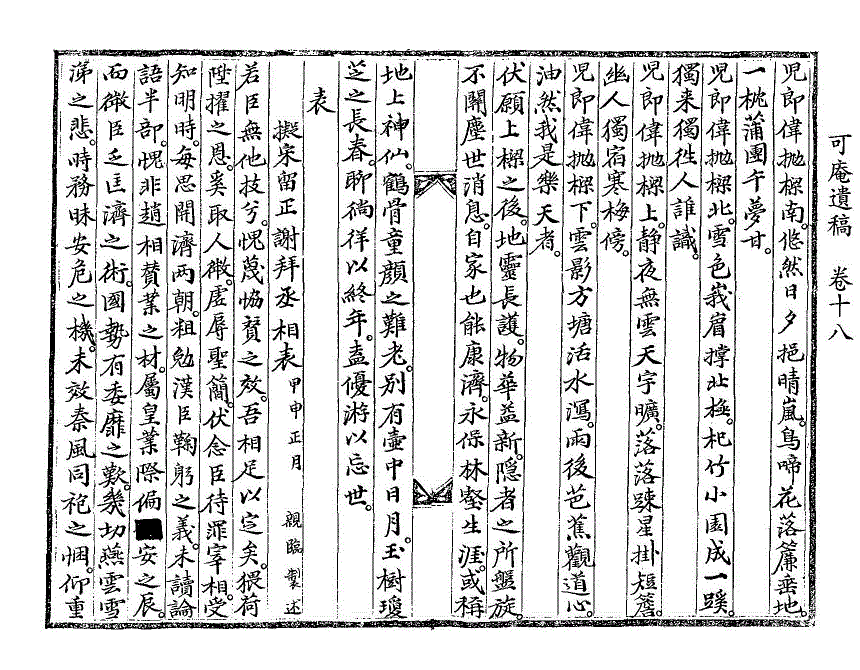 可庵遺稿　卷十八
兒郎偉抛樑南。悠然日夕挹晴嵐。鳥啼花落簾垂地。
一枕蒲團午夢甘。
兒郎偉抛樑北。雪色峩眉撑北極。杞竹小園成一蹊。
獨来獨徃人誰識。
兒郎偉抛樑上。静夜無雲天宇曠。落落踈星掛短簷。
幽人獨宿寒梅傍。
兒郎偉抛樑下。雲影方塘活水瀉。雨後芭蕉觀道心。
油然我是樂天者。
伏願上樑之後。地靈長護。物華益新。隱者之所盤旋。
不關塵世消息。自家也能康濟。永保林壑生涯。或稱
地上神仙。鶴骨童顔之難老。别有壺中日月。玉樹瓊
芝之長春。聊徜徉以終年。盍優游以忘世。
表
擬宋留正謝拜丞相表 甲申正月 親臨製述
若臣無他技兮。愧蔑恊賛之效。吾相足以定矣。猥荷
陛擢之恩。奚取人微。虗辱聖簡。伏念臣待罪宰相。受
知明時。每思開濟兩朝。粗勉漢臣鞠躬之義。未讀論
語半部。愧非趙相賛業之材。屬皇業際偏安之辰。
而微臣乏匡濟之術。國勢有委靡之歎。幾切燕雲雪
涕之悲。時務昧安危之機。未效秦風同袍之悃。仰重